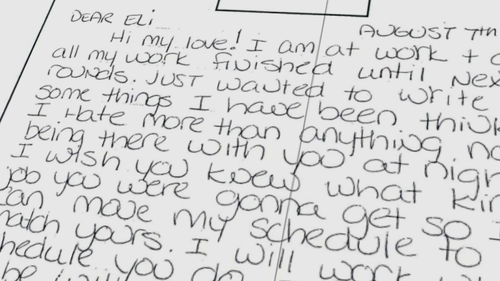 DEAR ELi
AUGUST 7th
Hi my love! I am at work +
all my work finished until Nex
rounds. JUST wanted to write
some things I have been think
I Hate more than anything no
being there with you at nigh
I wish you knew what kin
job you were gonna get so I
can move my schedule to
match yours. I will work
hedule you do
be